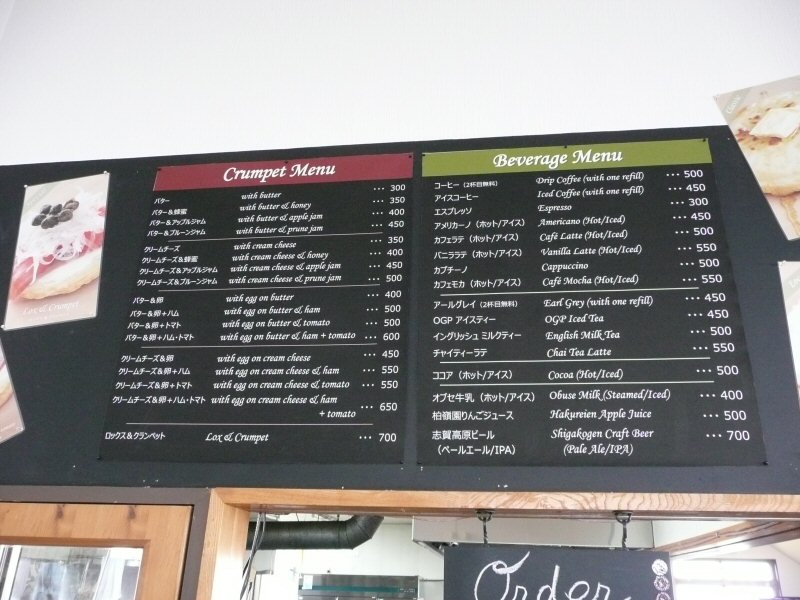 Crumpet Menu
バター with butter ･･･ 300
バター＆蜂蜜 with butter & honey ･･･ 350
バター＆アップルジャム with butter & apple jam ･･･ 400
バター＆プルーンジャム with butter & prune jam ･･･ 450
クリームチーズ with cream cheese ･･･ 350
クリームチーズ＆蜂蜜 with cream cheese & honey ･･･ 400
クリームチーズ＆アップルジャム with cream cheese & apple jam ･･･ 450
クリームチーズ＆プルーンジャム with cream cheese & prune jam ･･･ 500
バター＆卵 with egg on butter ･･･ 400
バター＆卵＋ハム with egg on butter & ham ･･･ 500
バター＆卵＋トマト with egg on butter & tomato ･･･ 500
バター＆卵＋ハム・トマト with egg on butter & ham + tomato ･･･ 600
クリームチーズ＆卵 with egg on cream cheese ･･･ 450
クリームチーズ＆卵＋ハム with egg on cream cheese & ham ･･･ 550
クリームチーズ＆卵＋トマト with egg on cream cheese & tomato ･･･ 550
クリームチーズ＆卵＋ハム・トマト with egg on cream cheese & ham
+ tomato ･･･ 650
ロックス＆クランペット Lox & Crumpet ･･･ 700
Beverage Menu
コーヒー（2杯目無料） Drip Coffee (with one refill) ･･･ 500
アイスコーヒー Iced Coffee (with one refill) ･･･ 450
エスプレッソ Espresso ･･･ 300
アメリカーノ（ホット/アイス） Americano (Hot/Iced) ･･･ 450
カフェラテ（ホット/アイス） Café Latte (Hot/Iced) ･･･ 500
バニララテ（ホット/アイス） Vanilla Latte (Hot/Iced) ･･･ 550
カプチーノ Cappuccino ･･･ 500
カフェモカ（ホット/アイス） Café Mocha (Hot/Iced) ･･･ 550
アールグレイ（2杯目無料） Earl Grey (with one refill) ･･･ 450
OGP アイスティー OGP Iced Tea ･･･ 450
イングリッシュ ミルクティー English Milk Tea ･･･ 500
チャイティーラテ Chai Tea Latte ･･･ 550
ココア（ホット/アイス） Cocoa (Hot/Iced) ･･･ 500
オブセ牛乳（ホット/アイス） Obuse Milk (Steamed/Iced) ･･･ 400
柏嶺園りんごジュース Hakureien Apple Juice ･･･ 500
志賀高原ビール Shigakogen Craft Beer ･･･ 700
（ペールエール/IPA） (Pale Ale/IPA)
Lox & Crumpet
Order